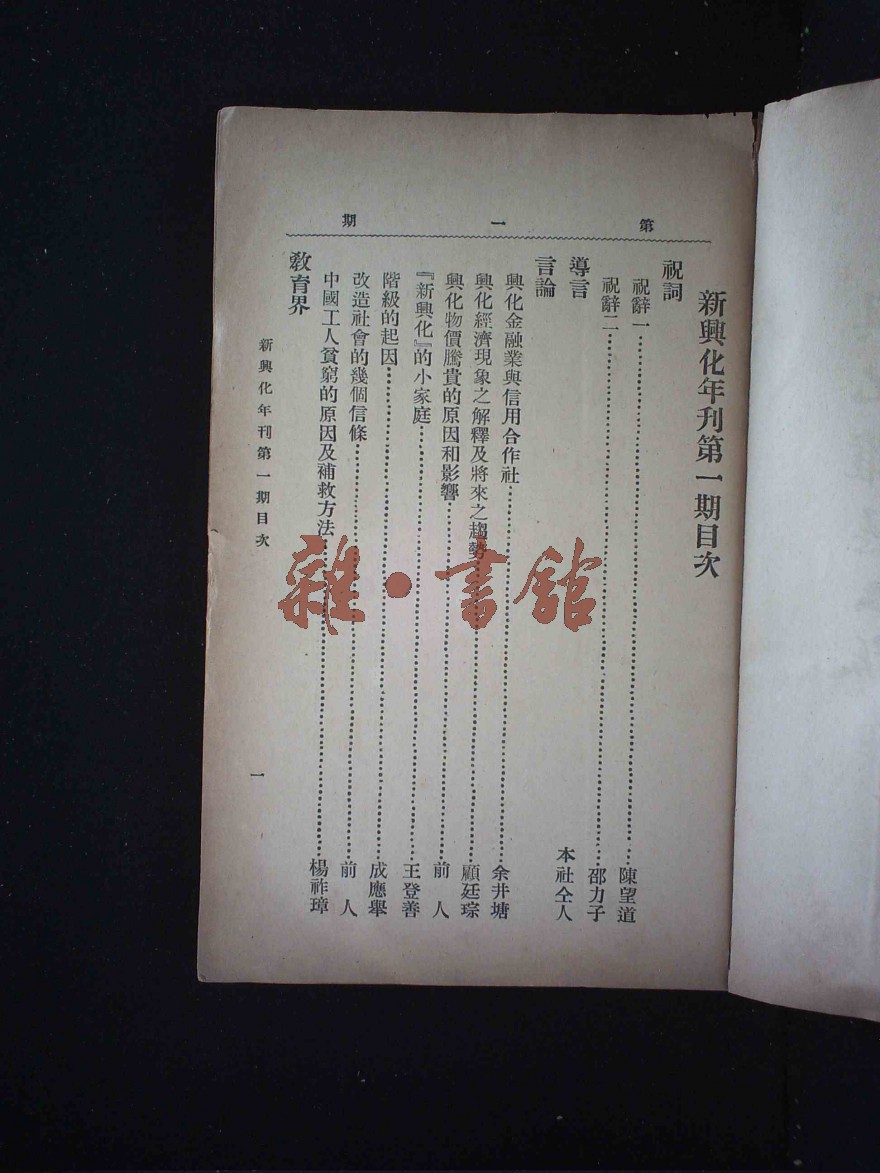 第一期
新興化年刊第一期目次
祝詞
祝辭一……陳望道
祝辭二……邵力子
導言 本社仝人
言論
興化金融業與信用合作社……余井塘
興化經濟現象之解釋及將來之趨勢……顧廷琮
興化物價騰貴的原因和影響……前人
『新興化』的小家庭……王登善
階級的起因……成應舉
改造社會的幾個信條……前人
中國工人貧窮的原因及補救方法……楊祚璋
教育界
新興化年刊第一期目次
一
雜·書館